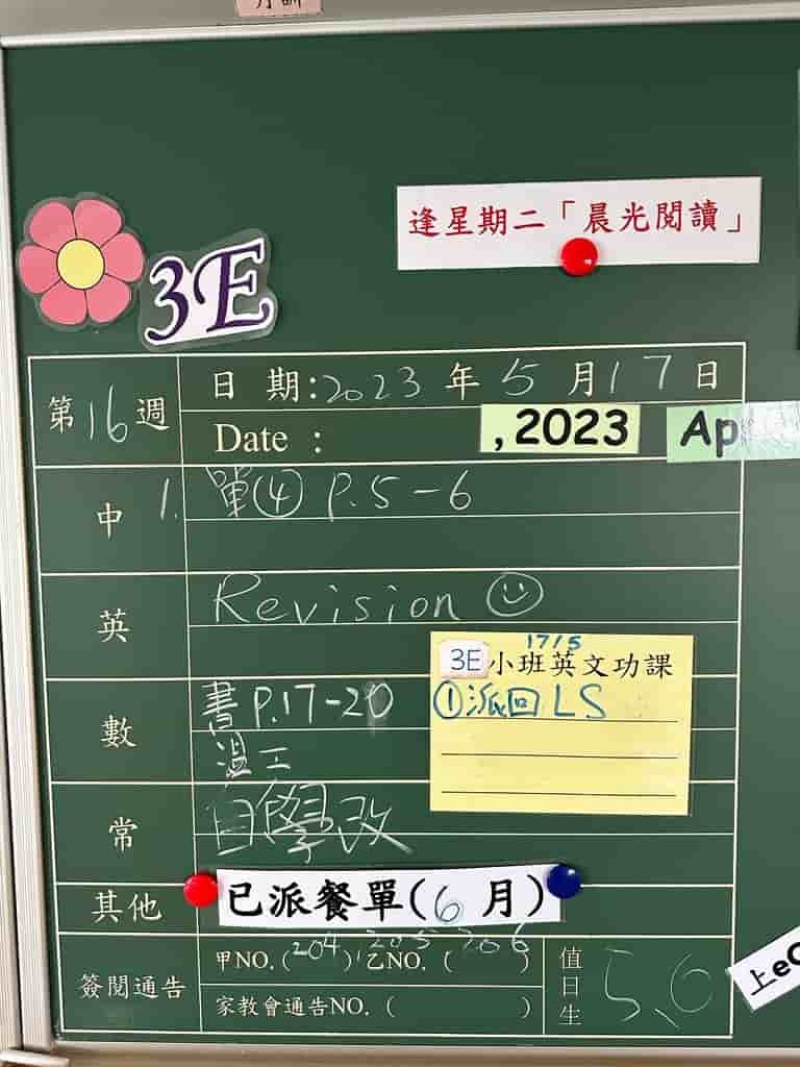 月訓
逢星期二「晨光閱讀」
3E
第16週
日 期:2023 年 5 月17日
Date : , 2023 Ap
中 1. 單④ P.5-6
英 Revision
3E 小班英文功課
17/5
①派回 LS
數 書 P.17-20
溫工
常 自學改
其他 已派餐單(6 月)
簽閱通告
甲NO.(204)乙NO.(205, 206)
家教會通告NO.( )
值日生 5、6
上eC